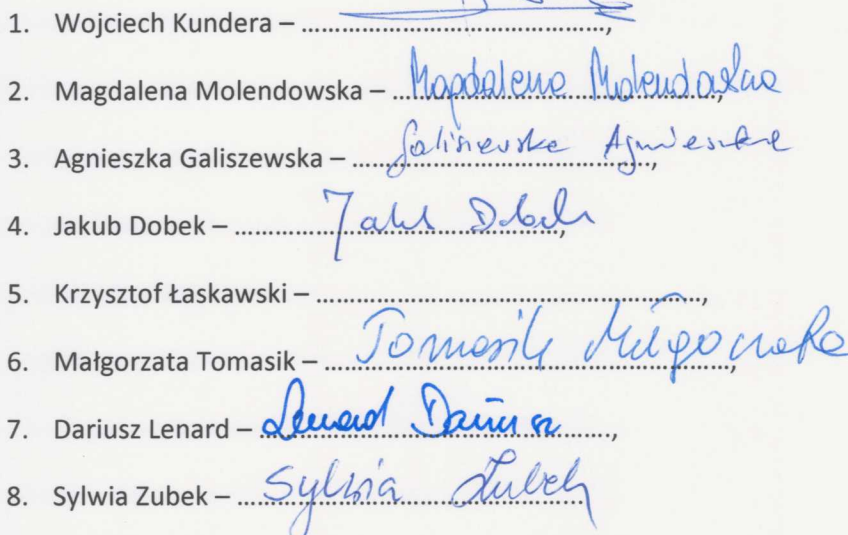 1. Wojciech Kundera – ..............................................,
2. Magdalena Molendowska – Magdalena Molendowska,
3. Agnieszka Galiszewska – Galiszewska Agnieszka,
4. Jakub Dobek – Jakub Dobek,
5. Krzysztof Łaskawski – ..........................................................,
6. Małgorzata Tomasik – Tomasik Małgorzata,
7. Dariusz Lenard – Lenard Dariusz,
8. Sylwia Zubek – Sylwia Zubek